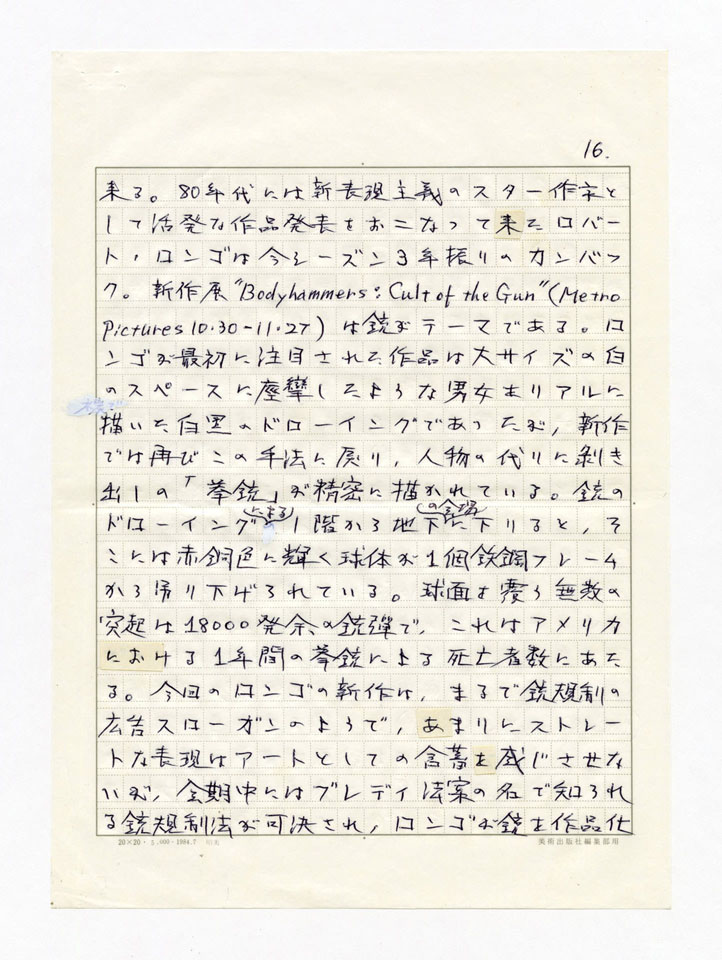 16.
来る。80年代には新表現主義のスター作家と
して活発な作品発表をおこなって来たロバー
ト・ロンゴは今シーズン3年振りのカンバッ
ク。新作展"Bodyhammers: Cult of the Gun"(Metro
Pictures 10.30-11.27)は銃がテーマである。ロ
ンゴが最初に注目された作品は大サイズの白
のスペースに痙攣したような男女をリアルに
描いた白黒のドローイングであったが、新作
では再びこの手法に戻り、人物の代りに剥き
出しの「拳銃」が精密に描かれている。銃の
による の会場
ドローイング1階から地下に下りると、そ
こには赤銅色に輝く球体が1個鉄鋼フレーム
から吊り下げられている。球面を覆う無数の
突起は18000発余の銃弾で、これはアメリカ
における1年間の拳銃による死亡者数にあた
る。今回のロンゴの新作は、まるで銃規制の
広告スローガンのようで、あまりにストレー
トな表現はアートとしての含蓄を感じさせな
いが、会期中にはブレディ法案の名で知られ
る銃規制法が可決され、ロンゴが銃を作品化
20×20・5,000-1984.7
美術出版社編集部用